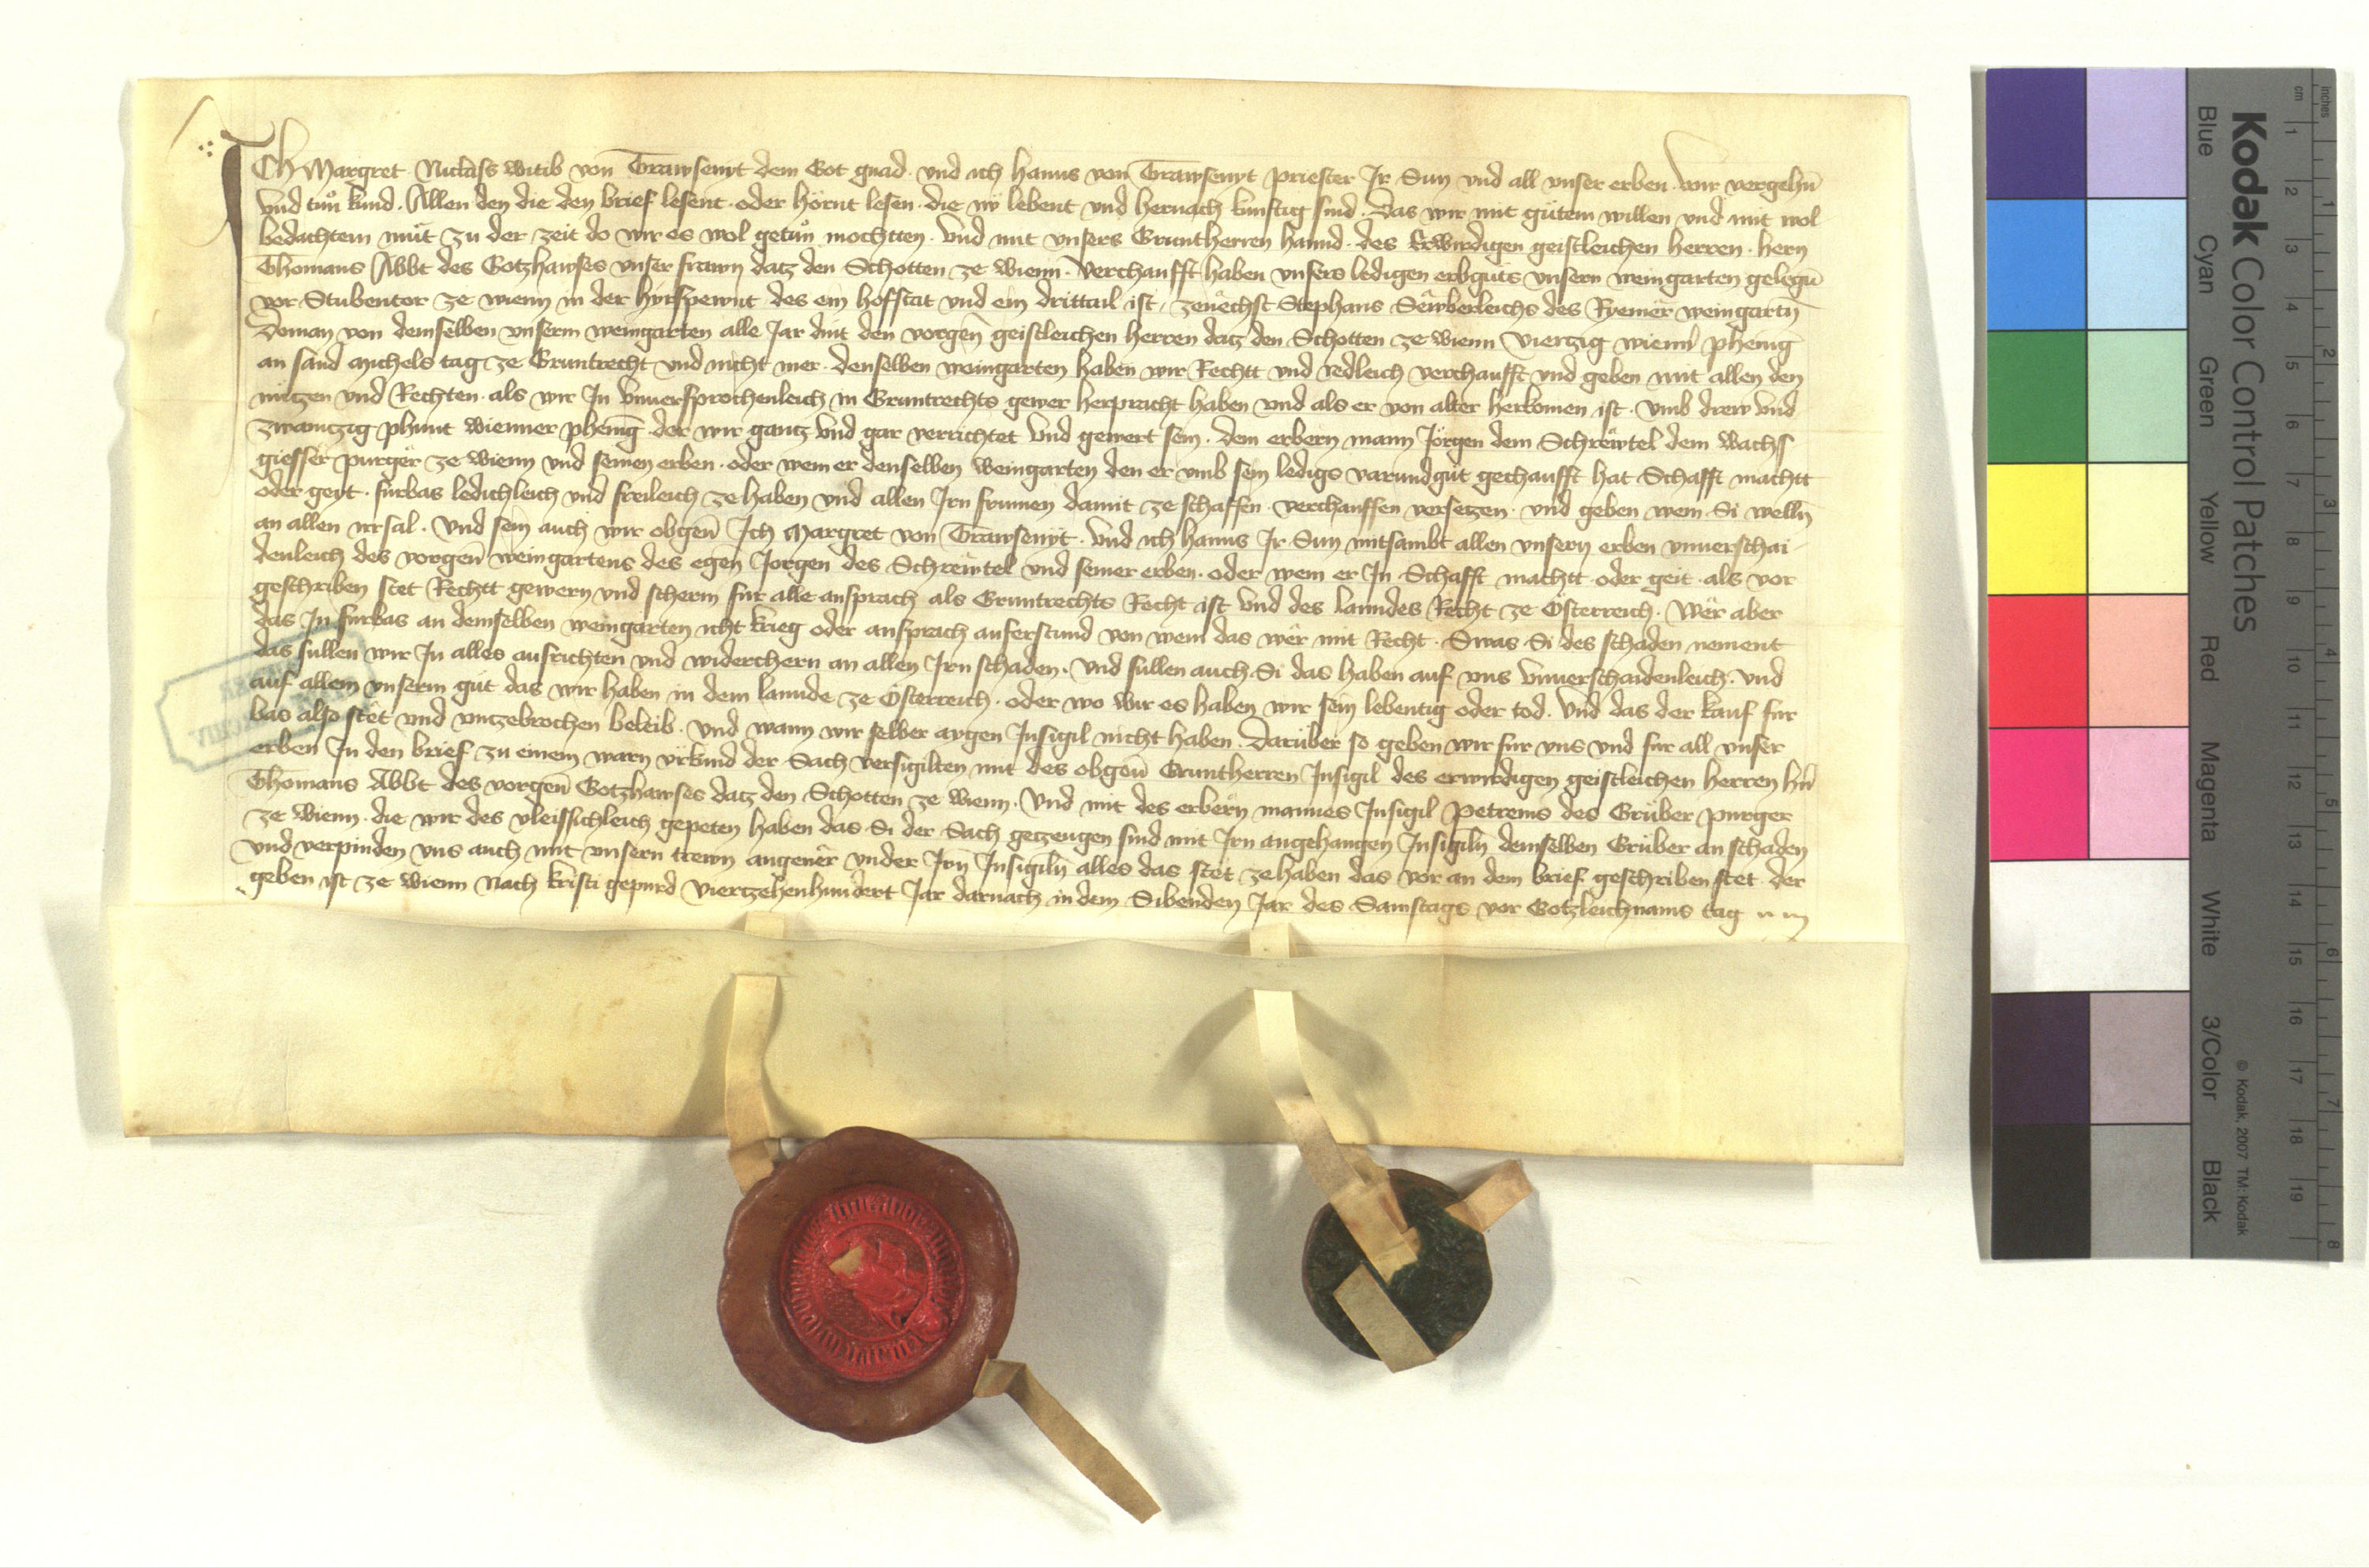 ICH Margret Niclass witib von Trawsenyt dem Got gnad. vnd ich Hanns von Trawsenyt priester Ir Sun vnd all vnser erben. wir vergehn̄
vnd tůn kund. Allen den die den brief lesent. oder hörnt lesen. die nv lebent vnd hernach kunftig sind. Das wir mit gůtem willen vnd mit wol
bedachtem můt zu der zeit do wir es wol getůn mochtten. vnd mit vnsers Gruntherren hannd. des Erwirdigen geistleichen herren. hern
Thomans Abbt des Gotzhawses vnser frawn datz den Schotten ze wienn. verchaufft haben vnsers ledigen erbgůts vnsern weingarten gelegn̄
vor Stubentor ze wienn in der hyrspewnt des ein hofstat vnd ein drittail ist, zenëchst Stephans Sëwberleichs des Ryemër weingartn̄
Doman von demselben vnserm weingarten alle Jar dint den vorgen̄ geistleichen herren datz den Schotten ze wienn vierzig wienn̄ phenig
an sand Michels tag ze Gruntrecht vnd nicht mer. denselben weingarten haben wir Rechtt vnd redleich verchaufft vnd geben mit allen den
nützen vnd Rechten. als wir In vnuersprochenleich in Gruntrechts gewer herpracht haben vnd als er von alter herkomen ist. vmb drew vnd
zwaintzig phunt wienner phenīg der wir gantz vnd gar verrichtet vnd gewert sein. dem erbern mann Jörgen dem Schrëwtel dem wachs
giesser purger ze wienn vnd seinen erben. oder wem er denselben weingarten den er vmb sein ledigs varundgůt gechaufft hat Schafft machtt
oder geyt. furbas ledichleich vnd freileich ze haben vnd allen Irn frumen damit ze schaffen. verchauffen versetzen. vnd geben wem Si welln̄
an allen irrsal. vnd sein auch wir obgen̄ Ich Margret von Trawsenyt. vnd ich Hanns Ir Sun mitsambt allen vnsern erben vnuerschai-
denleich des vorgen̄ weingartens des egen̄ Jorgen des Schrewtel vnd seiner erben. oder wem er In Schafft machtt oder geit. als vor
geschriben stet Rechtt gewern vnd scherm für alle ansprach als Gruntrechts Recht ist vnd des lanndes Recht ze Österreich. Wër aber
das In furbas an demselben weingarten icht krieg oder ansprach auferstund von wem das wër mit Recht. Swas Si des schaden nement
das sullen wir In alles ausrichten vnd widerchern an allen Irn schaden. vnd sullen auch Si das haben auf vns vnuerschaidenleich. vnd
auf allem vnserm gůt das wir haben in dem lannde ze Österreich. oder wo wir es haben wir sein lebentig oder tod. vnd das der kauf fur
bas also stët vnd vntzebrochen beleib. vnd wann wir selber aygen Insigil nicht haben. Darüber so geben wir fur vns vnd fur all vnser
erben In den brief zu einem warn vrkund der Sach versigilten mit des obgen̄ Gruntherren Insigil des erwirdigen geistleichen herren hn̄
Thomans Abbt des vorgen̄ Gotzhawses datz den Schotten ze wienn. vnd mit des erbern mannes Insigil Petreins des Grůber purger
ze wienn. die wir des vleissichleich gepeten haben das Si der Sach getzeugen sind mit Irn angehangen Insigiln̄ demselben Grůber an schaden
vnd verpinden vns auch mit vnsern trewn angenër vnder Irn̄ Insigiln̄ alles das stët ze haben das vor an dem brief geschriben stet. der
geben ist ze wienn Nach Kristi gepurd viertzehenhundert Jar darnach in dem Sibenden Jar des Samstags vor Gotzleichnams tag
Kodak Color Control Patches
Blue Cyan Green Yellow Red Magenta White 3/Color Black
© Kodak, 2007 TM: Kodak
inches 1 2 3 4 5 6 7 8
cm 1 2 3 4 5 6 7 8 9 10 11 12 13 14 15 16 17 18 19